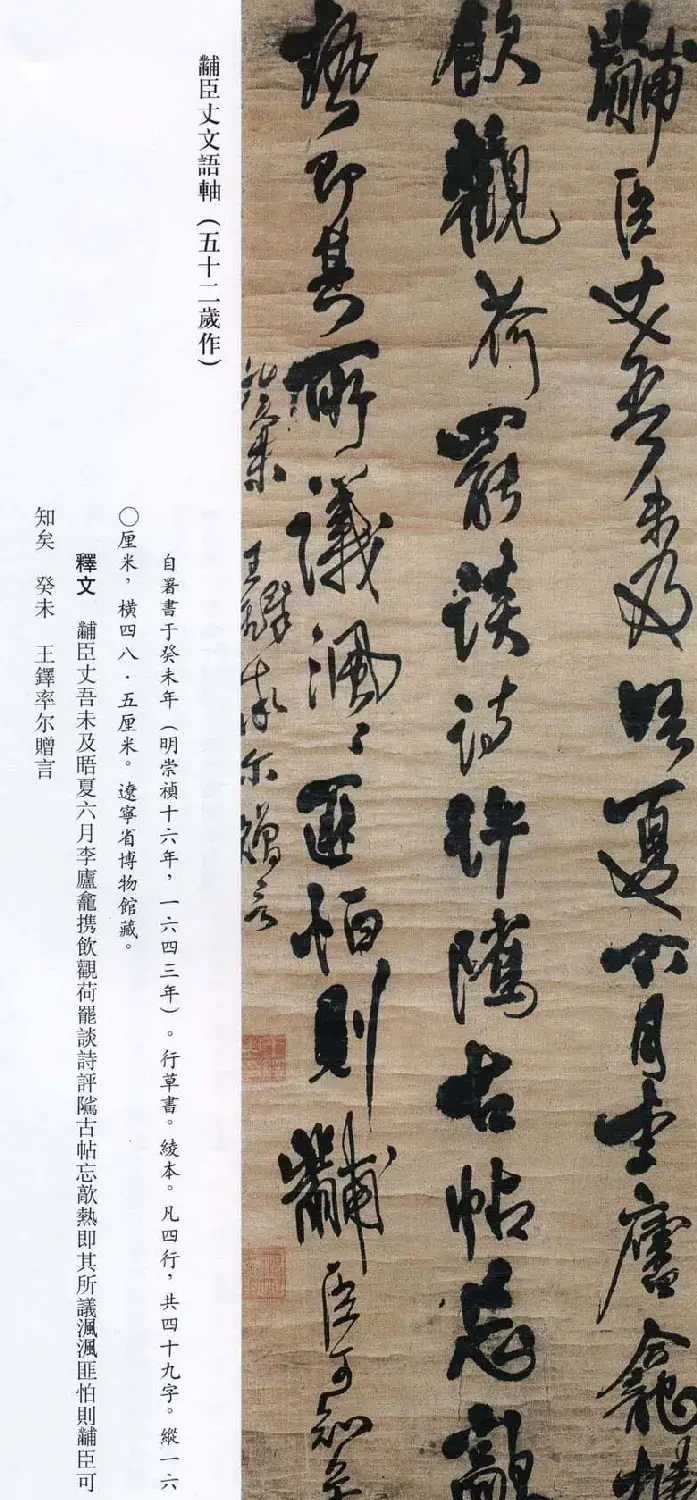 黼臣丈吾未及晤夏六月李廬龕携
飲觀荷罷談詩評隲古帖忘歊
熱即其所議渢〻匪怕則黼臣可知矣
癸未 王鐸率尔贈言
黼臣丈文語軸（五十二歲作）
自暑書于癸未年（明崇禎十六年，一六四三年）。行草書。綾本。凡四行，共四十九字。縱一六
〇厘米，橫四八·五厘米。遼寧省博物館藏。
釋文　黼臣丈吾未及晤夏六月李廬龕携飲觀荷罷談詩評隲古帖忘歊熱即其所議渢渢匪怕則黼臣可
知矣　癸未　王鐸率尔贈言